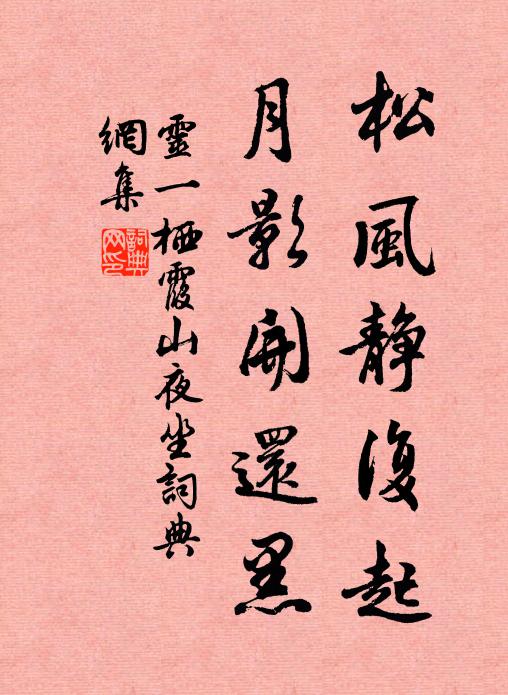 松風靜復起
月影開還黑
靈一栖霞山夜坐詞典
網集
詞典網印